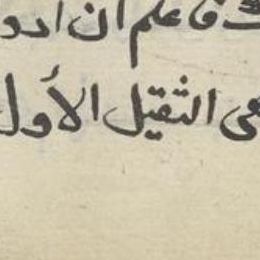 فاعلم ان ادو
هى الثقيل الأول